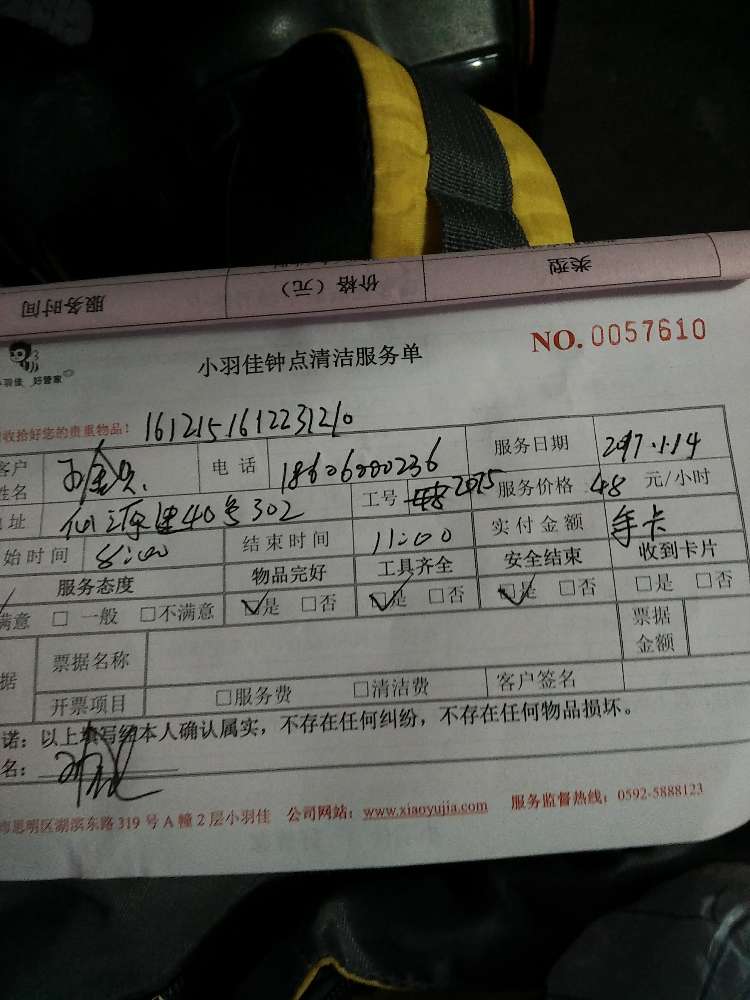 服务时间 价格（元） 类型
小羽佳 好管家
小羽佳钟点清洁服务单
NO. 0057610
收拾好您的贵重物品！ 1612151612231210
客户姓名 电 话 18606000236 服务日期 2017.1.14
地址 40号302 工号 2075 服务价格 48 元/小时
始时间 8:00 结束时间 11:00 实付金额 年卡
服务态度 物品完好 工具齐全 安全结束 收到卡片
满意 □ 一般 □不满意 ☑是 □否 ☑是 □否 ☑是 □否 □是 □否
据 票据名称 票据金额
开票项目 □服务费 □清洁费 客户签名
诺：以上填写经本人确认属实，不存在任何纠纷，不存在任何物品损坏。
名：
市思明区湖滨东路 319 号 A 幢 2 层小羽佳 公司网站：www.xiaoyujia.com 服务监督热线：0592-5888123